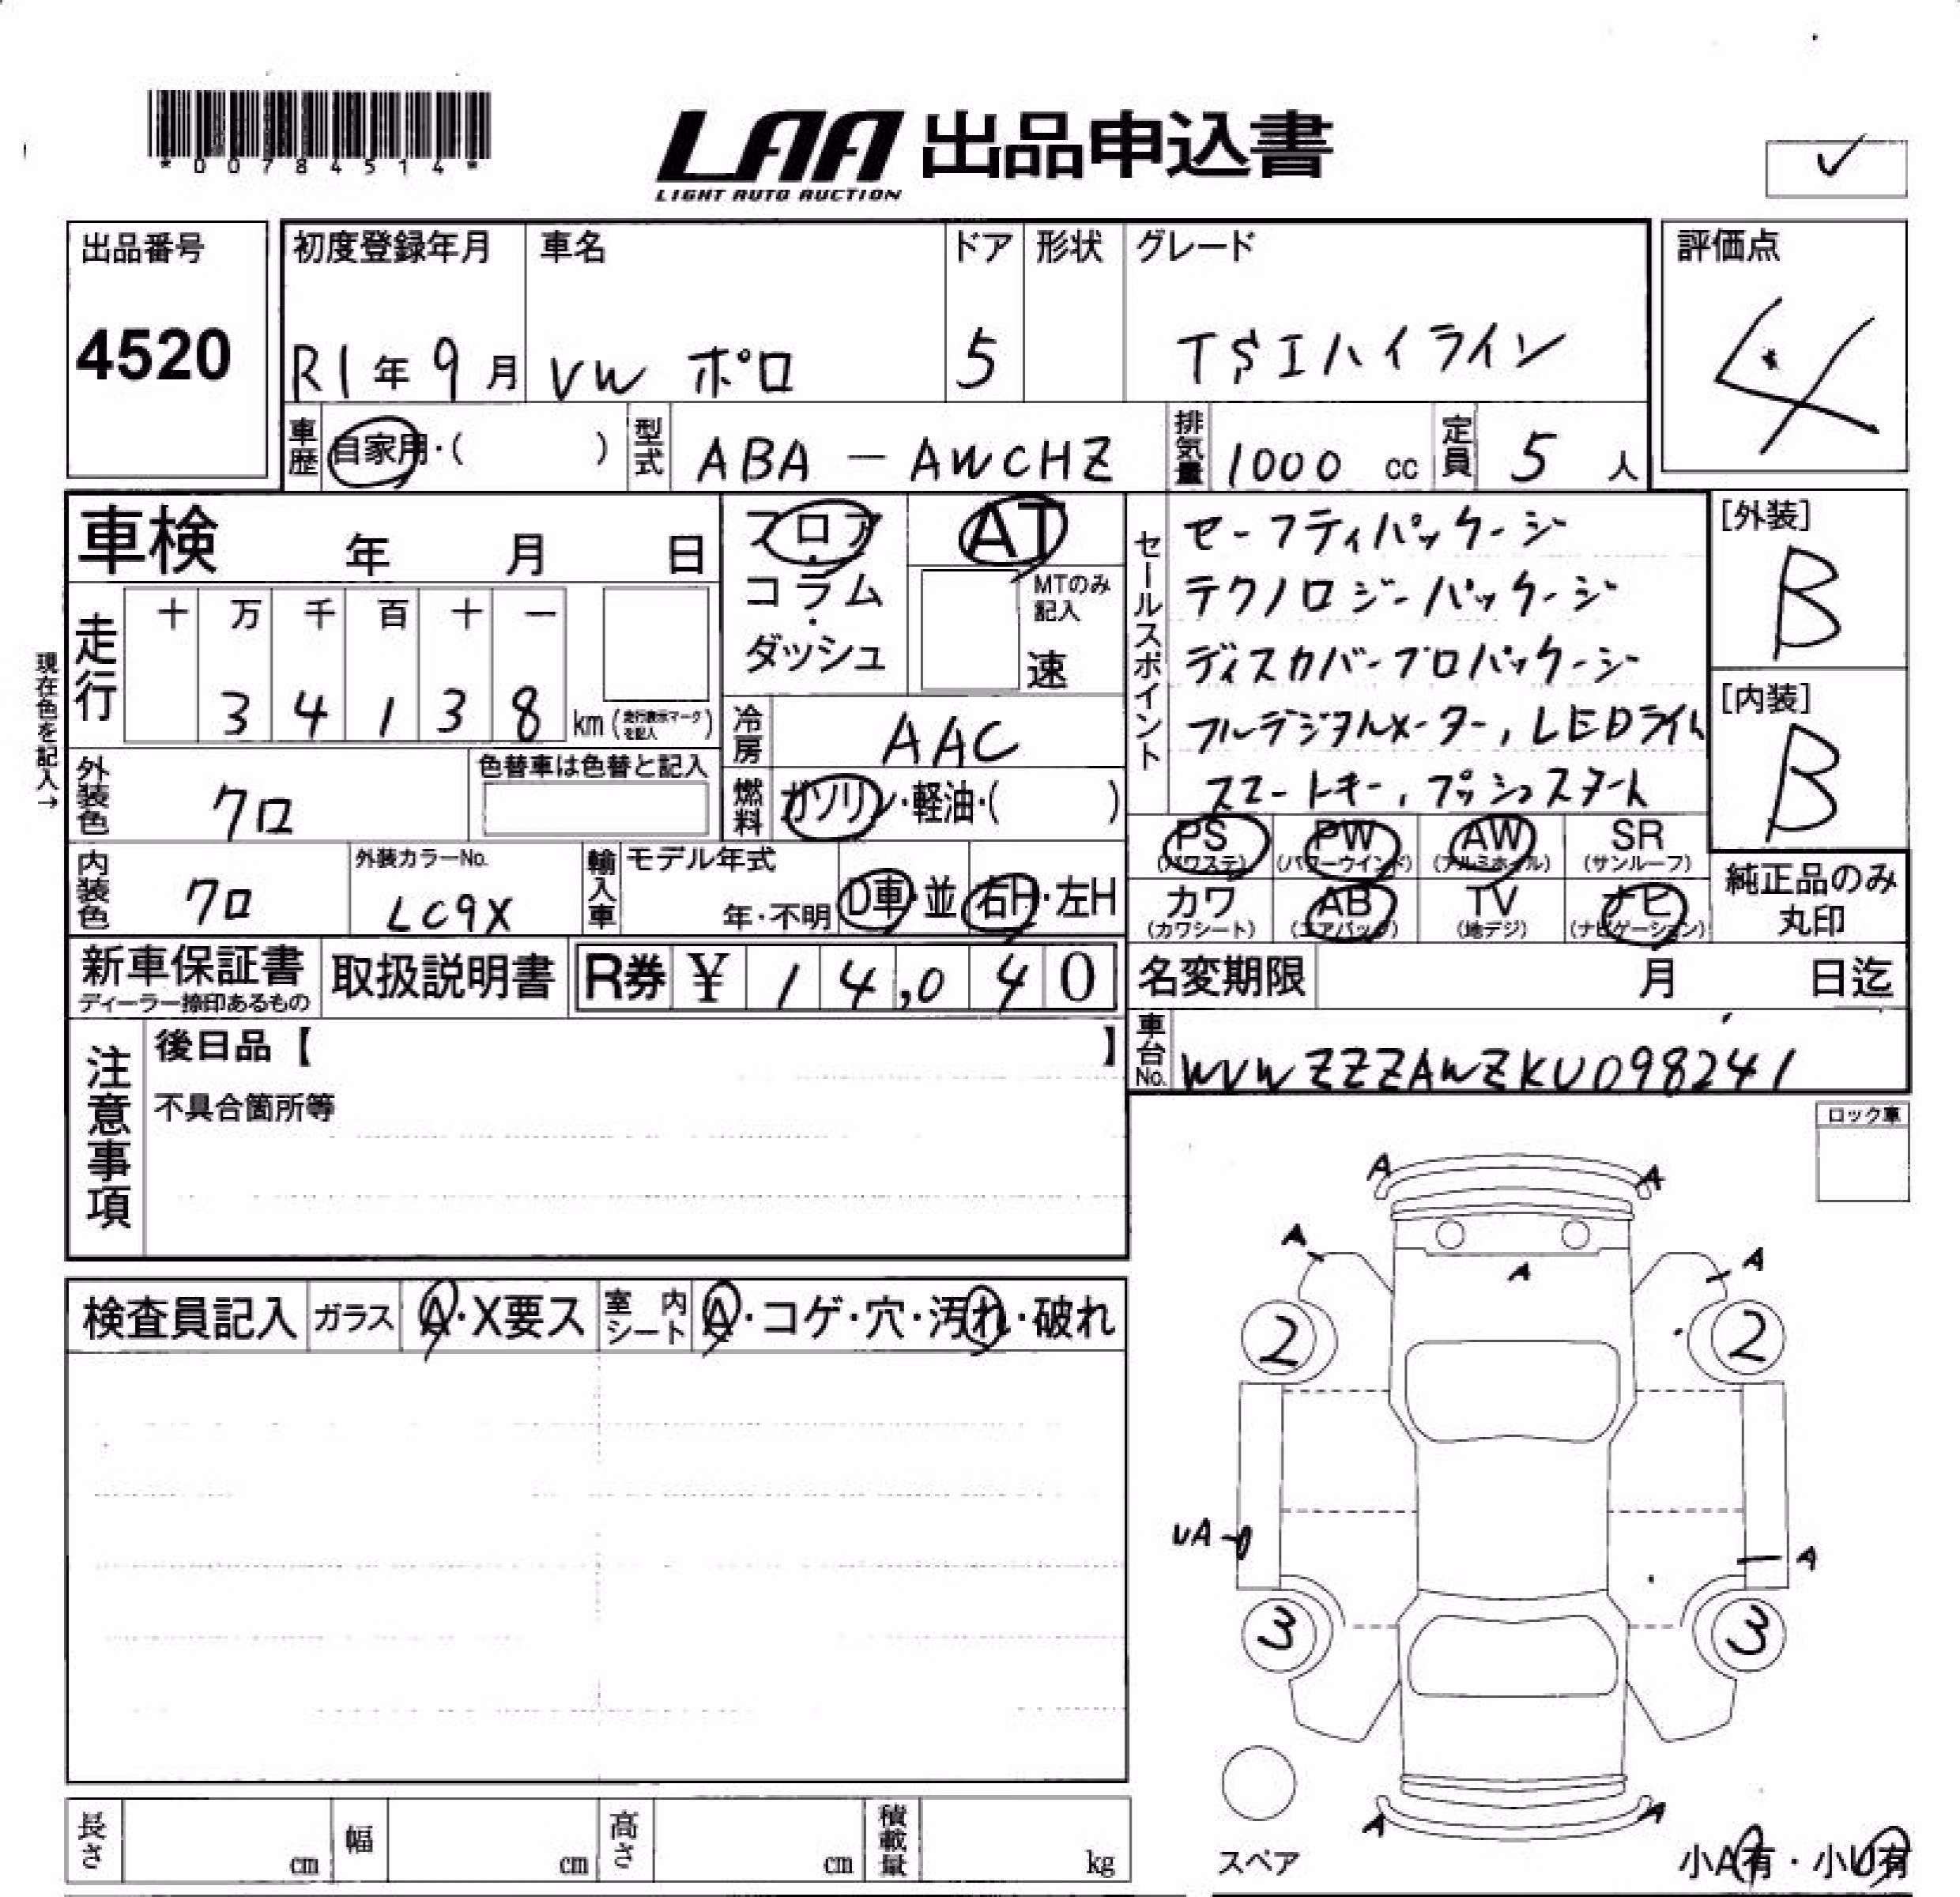 *00784514*
LAA 出品申込書
LIGHT AUTO AUCTION
✓
出品番号
4520
初度登録年月
R1年9月
車名
VW ポロ
ドア
5
形状
グレード
TSIハイライン
評価点
4
車歴 自家用・( )
型式 ABA-AWCHZ
排気量 1000 cc
定員 5 人
車検 年 月 日
現在色を記入→
走行 十 万 千 百 十 一
3 4 1 3 8 km(走行表示マークを記入)
フロア・コラム・ダッシュ
AT
MTのみ記入
速
冷房 AAC
燃料 ガソリン・軽油・( )
外装色 クロ
色替車は色替と記入
内装色 クロ
外装カラーNo.
LC9X
輸入車 モデル年式
年・不明
D車・並
右H・左H
セールスポイント
セーフティパッケージ
テクノロジーパッケージ
ディスカバープロパッケージ
フルデジタルメーター,LEDライト
スマートキー,プッシュスタート
[外装]
B
[内装]
B
PS (パワステ)
PW (パワーウインド)
AW (アルミホイル)
SR (サンルーフ)
カワ (カワシート)
AB (エアバッグ)
TV (地デジ)
ナビ (ナビゲーション)
純正品のみ丸印
新車保証書
ディーラー捺印あるもの
取扱説明書
R券 ¥ 14,040
名変期限 月 日迄
車台No. WVWZZZAWZKU098241
注意事項
後日品【 】
不具合箇所等
ロック車
検査員記入 ガラス A・X要ス 室内シート A・コゲ・穴・汚れ・破れ
A A
A A
A
2 2
UA
A
3 3
A A
スペア
小A有・小U有
長さ cm 幅 cm 高さ cm 積載量 kg